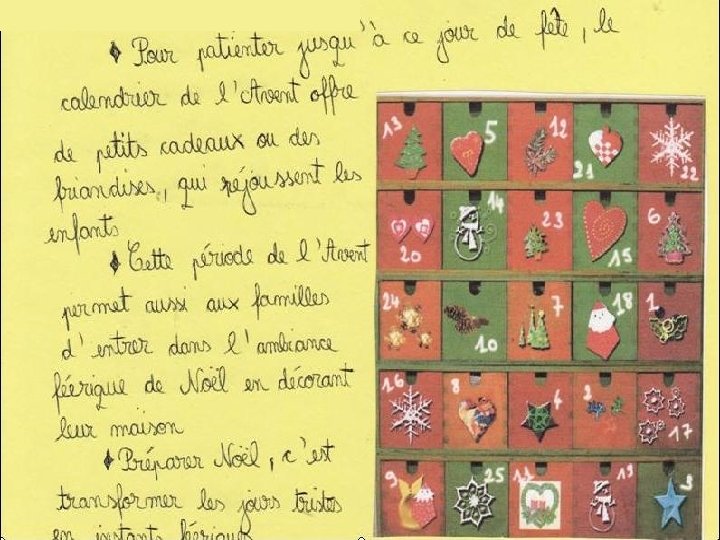 ♦ Pour patienter jusqu'à ce jour de fête, le
calendrier de l'Avent offre
de petits cadeaux ou des
friandises, qui réjoussent les
enfants
♦ Cette période de l'Avent
permet aussi aux familles
d'entrer dans l'ambiance
féérique de Noël en décorant
leur maison
♦ Préparer Noël, c'est
transformer les jours tristes
en instants féériques
13 5 12 21 22
20 14 23 15 6
24 10 7 18 1
16 8 4 2 17
9 25 11 19 3